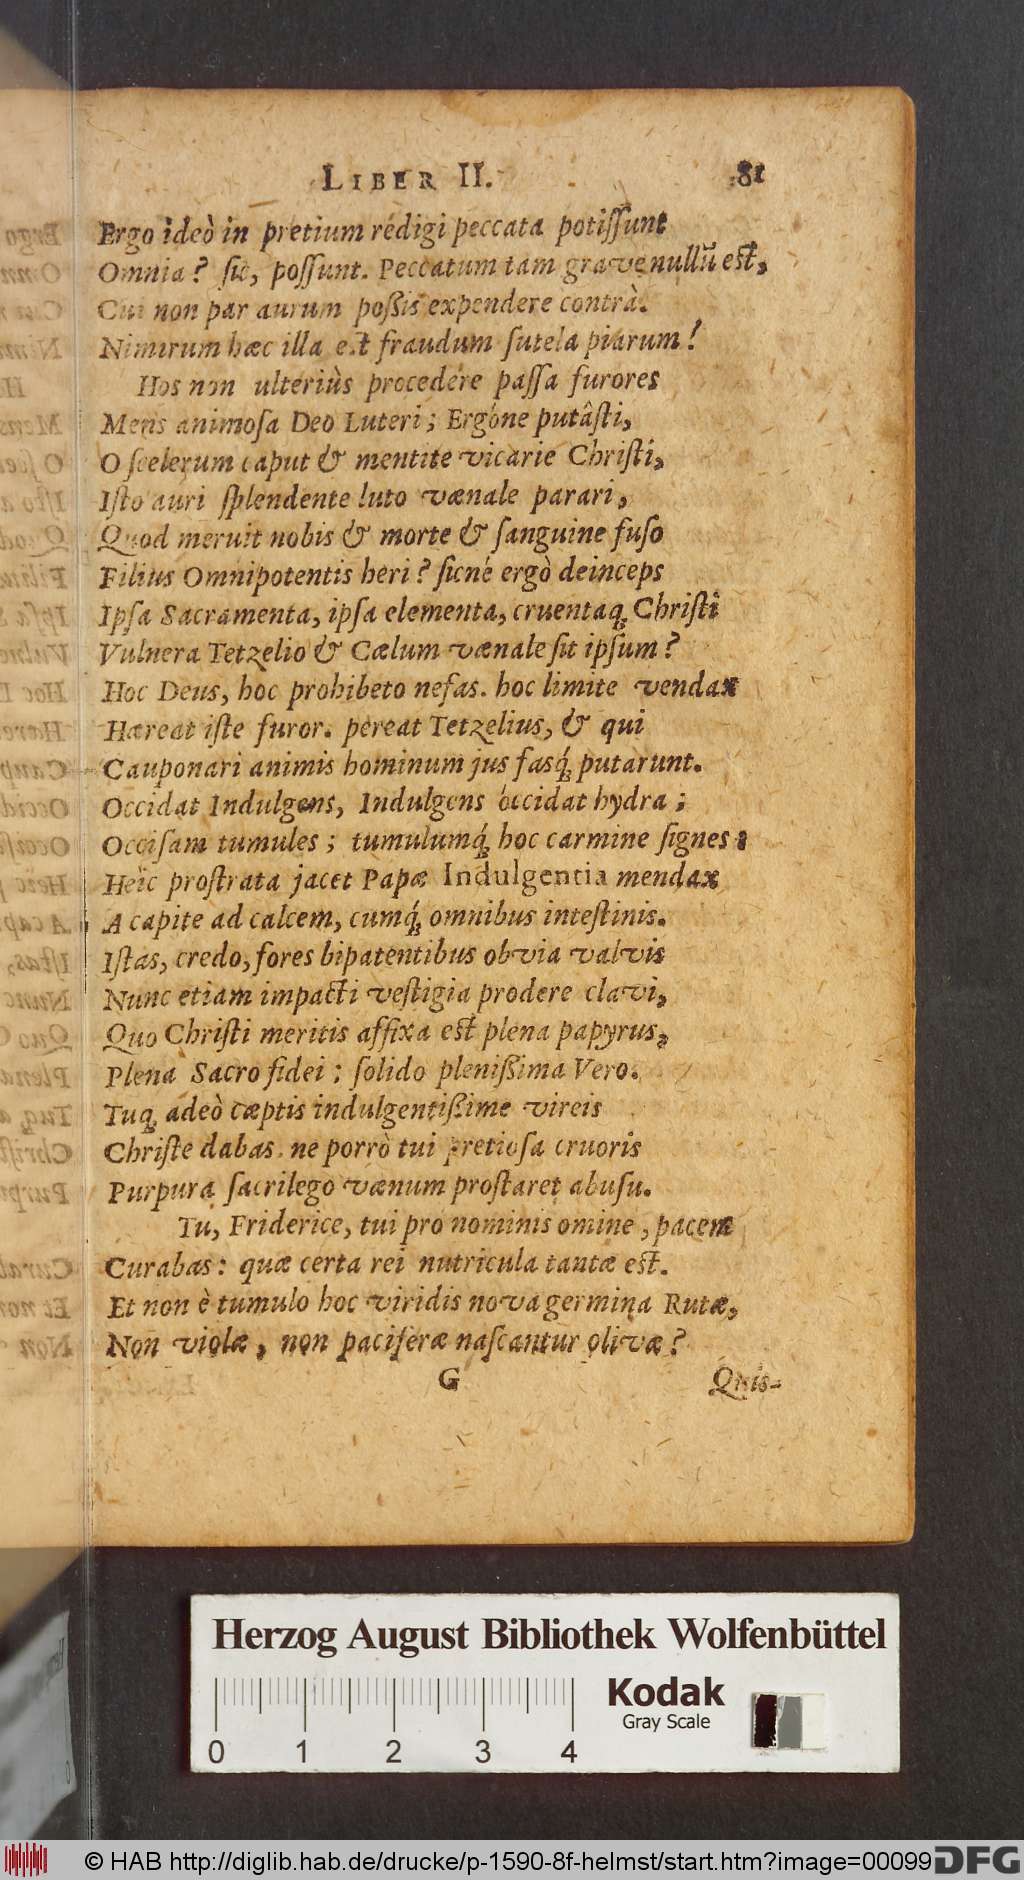 LIBER II. 81
Ergo ideò in pretium rédigi peccata potiſſunt
Omnia? ſic, poſſunt. Peccatum tam grave nullũ eſt,
Cui non par aurum poßis expendere contrà.
Nimirum hæc illa eſt fraudum ſutela piarum!
Hos non ulteriùs procedére paſſa furores
Mens animoſa Deo Luteri; Ergóne putâſti,
O ſcelerum caput & mentite vicarie Chriſti,
Iſto auri ſplendente luto vænale parari,
Quod meruit nobis & morte & ſanguine fuſo
Filius Omnipotentis heri? ſicné ergò deinceps
Ipſa Sacramenta, ipſa elementa, cruentaq; Chriſti
Vulnera Tetzelio & Cælum vænale ſit ipſum?
Hoc Deus, hoc prohibeto nefas. hoc limite vendax
Hæreat iſte furor. pereat Tetzelius, & qui
Cauponari animis hominum jus faſq́; putarunt.
Occidat Indulgens, Indulgens óccidat hydra;
Occiſam tumules; tumulumq́; hoc carmine ſignes:
Heîc proſtrata jacet Papæ Indulgentia mendax
A capite ad calcem, cumq́; omnibus inteſtinis.
Iſtas, credo, fores bipatentibus obvia valvis
Nunc etiam impacti veſtigia prodere clavi,
Quo Chriſti meritis affixa eſt plena papyrus,
Plena Sacro fidei: ſolido plenißima Vero.
Tuq; adeò cæptis indulgentißime vireis
Chriſte dabas. ne porrò tui pretioſa cruoris
Purpura ſacrilego vænum proſtaret abuſu.
Tu, Friderice, tui pro nominis omine, pacem
Curabas: quæ certa rei nutricula tantæ eſt.
Et non è tumulo hoc viridis nova germina Rutæ,
Non violæ, non paciferæ naſcantur olivæ?
G Quis-
Herzog August Bibliothek Wolfenbüttel
Kodak
Gray Scale
0 1 2 3 4
© HAB http://diglib.hab.de/drucke/p-1590-8f-helmst/start.htm?image=00099 DFG